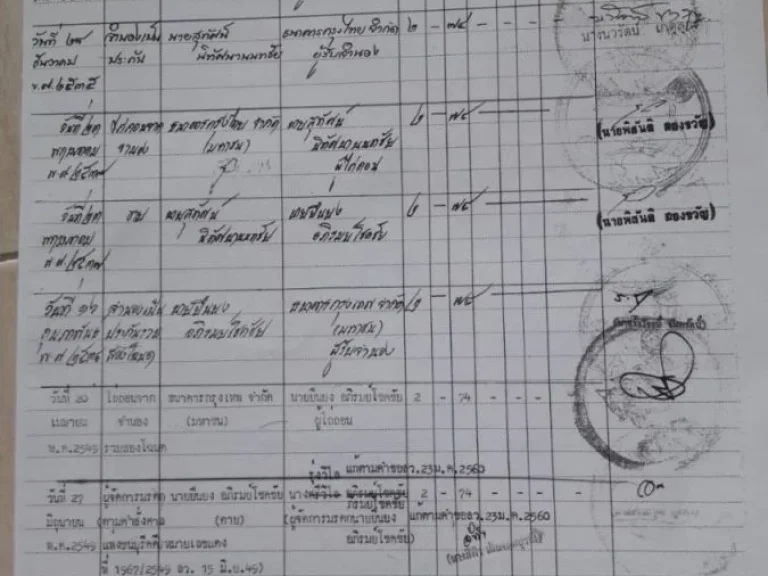 วันที่ ๒๘ จำนองเป็น นายสุทัศน์ ธนาคารกรุงไทย จำกัด ๒ - ๗๔ - - -
ธันวาคม ประกัน พิทัศนานนทชัย ผู้รับจำนอง นางนวรัตน์
พ.ศ.๒๕๓๕
วันที่ ไถ่ถอนจาก ธนาคารกรุงไทย จำกัด นายสุทัศน์ ๒ - ๗๔ - - - -
พฤษภาคม จำนอง (มหาชน) พิทัศนานนทชัย (นายพิสันติ ผองขวัญ)
พ.ศ.๒๕๓๗ ผู้ไถ่ถอน
วันที่ ขาย นายสุทัศน์ นายยืนยง ๒ - ๗๔ - - - -
พฤษภาคม พิทัศนานนทชัย อภิรมย์โชคชัย (นายพิสันติ ผองขวัญ)
พ.ศ.๒๕๓๗
วันที่ จำนองเป็น นายยืนยง ธนาคารกรุงเทพ จำกัด ๒ - ๗๔ - - - -
กุมภาพันธ์ ประกันรวม อภิรมย์โชคชัย (มหาชน)
พ.ศ. สองโฉนด ผู้รับจำนอง
วันที่ 20 ไถ่ถอนจาก ธนาคารกรุงเทพ จำกัด นายยืนยง อภิรมย์โชคชัย 2 - 74 - - - -
เมษายน จำนอง (มหาชน) ผู้ไถ่ถอน
พ.ศ.2549 รวมสองโฉนด
รุ่งวิไล แก้ตามคำขอลว.23ม.ค.2560
วันที่ 27 ผู้จัดการมรดก นายยืนยง อภิรมย์โชคชัย นางศรีวิไล อภิรมย์โชคชัย 2 - 74 - - - -
อภิรมย์โชคชัย
มิถุนายน (ตามคำสั่งศาล (ตาย) (ผู้จัดการมรดกนายยืนยง แก้ตามคำขอลว.23ม.ค.2560
พ.ศ.2549 แพ่งธนบุรีคดีหมายเลขแดง อภิรมย์โชคชัย)
ที่ 1967/2549 ลว. 15 มิ.ย.49)